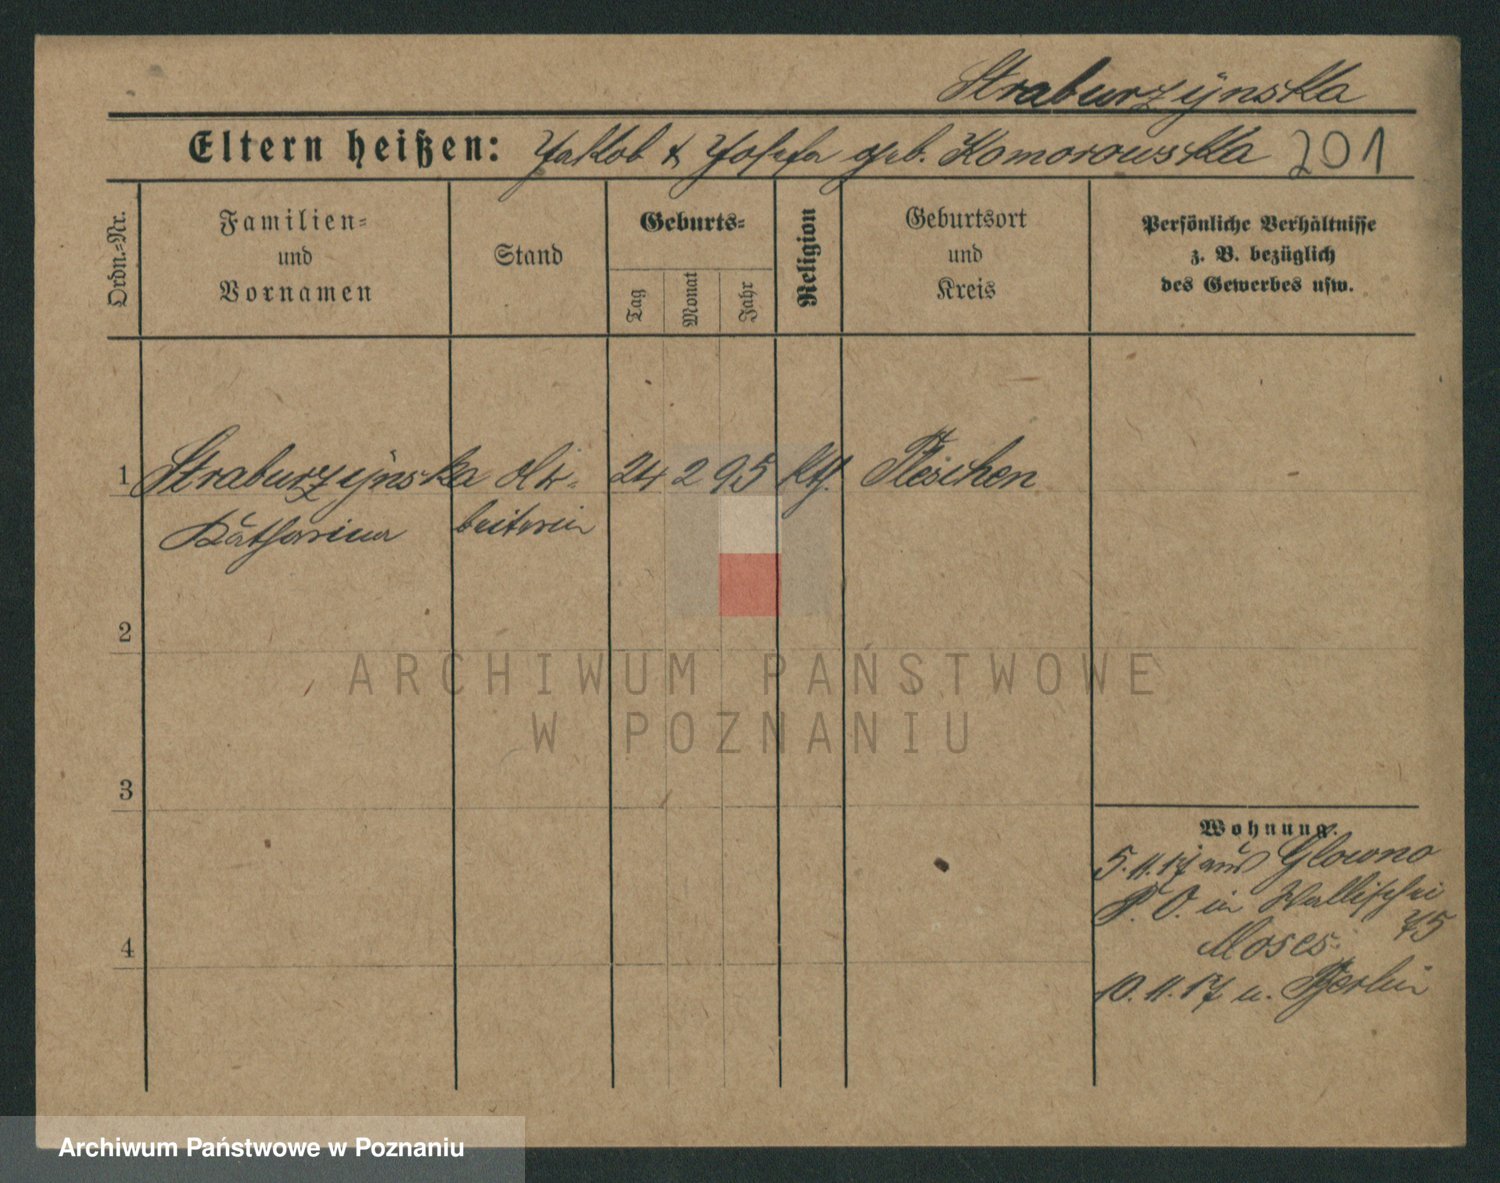 Straburzÿnska
Eltern heißen: Jakob & Josefa geb. Komorowska 201
Ordn.=Nr.
Familien=
und
Vornamen
Stand
Geburts=
Tag
Monat
Jahr
Religion
Geburtsort
und
Kreis
Persönliche Verhältnisse
z. B. bezüglich
des Gewerbes usw.
1 Straburzÿnska Ar- 24 2 95 kth. Pleschen
Katharina beiterin
2
ARCHIWUM PAŃSTWOWE
W POZNANIU
3
Wohnung.
5.11.17 aus Glowno
P. O. in Wallischei
75
Moses.
4
10.11.17 n. Berlin
Archiwum Państwowe w Poznaniu